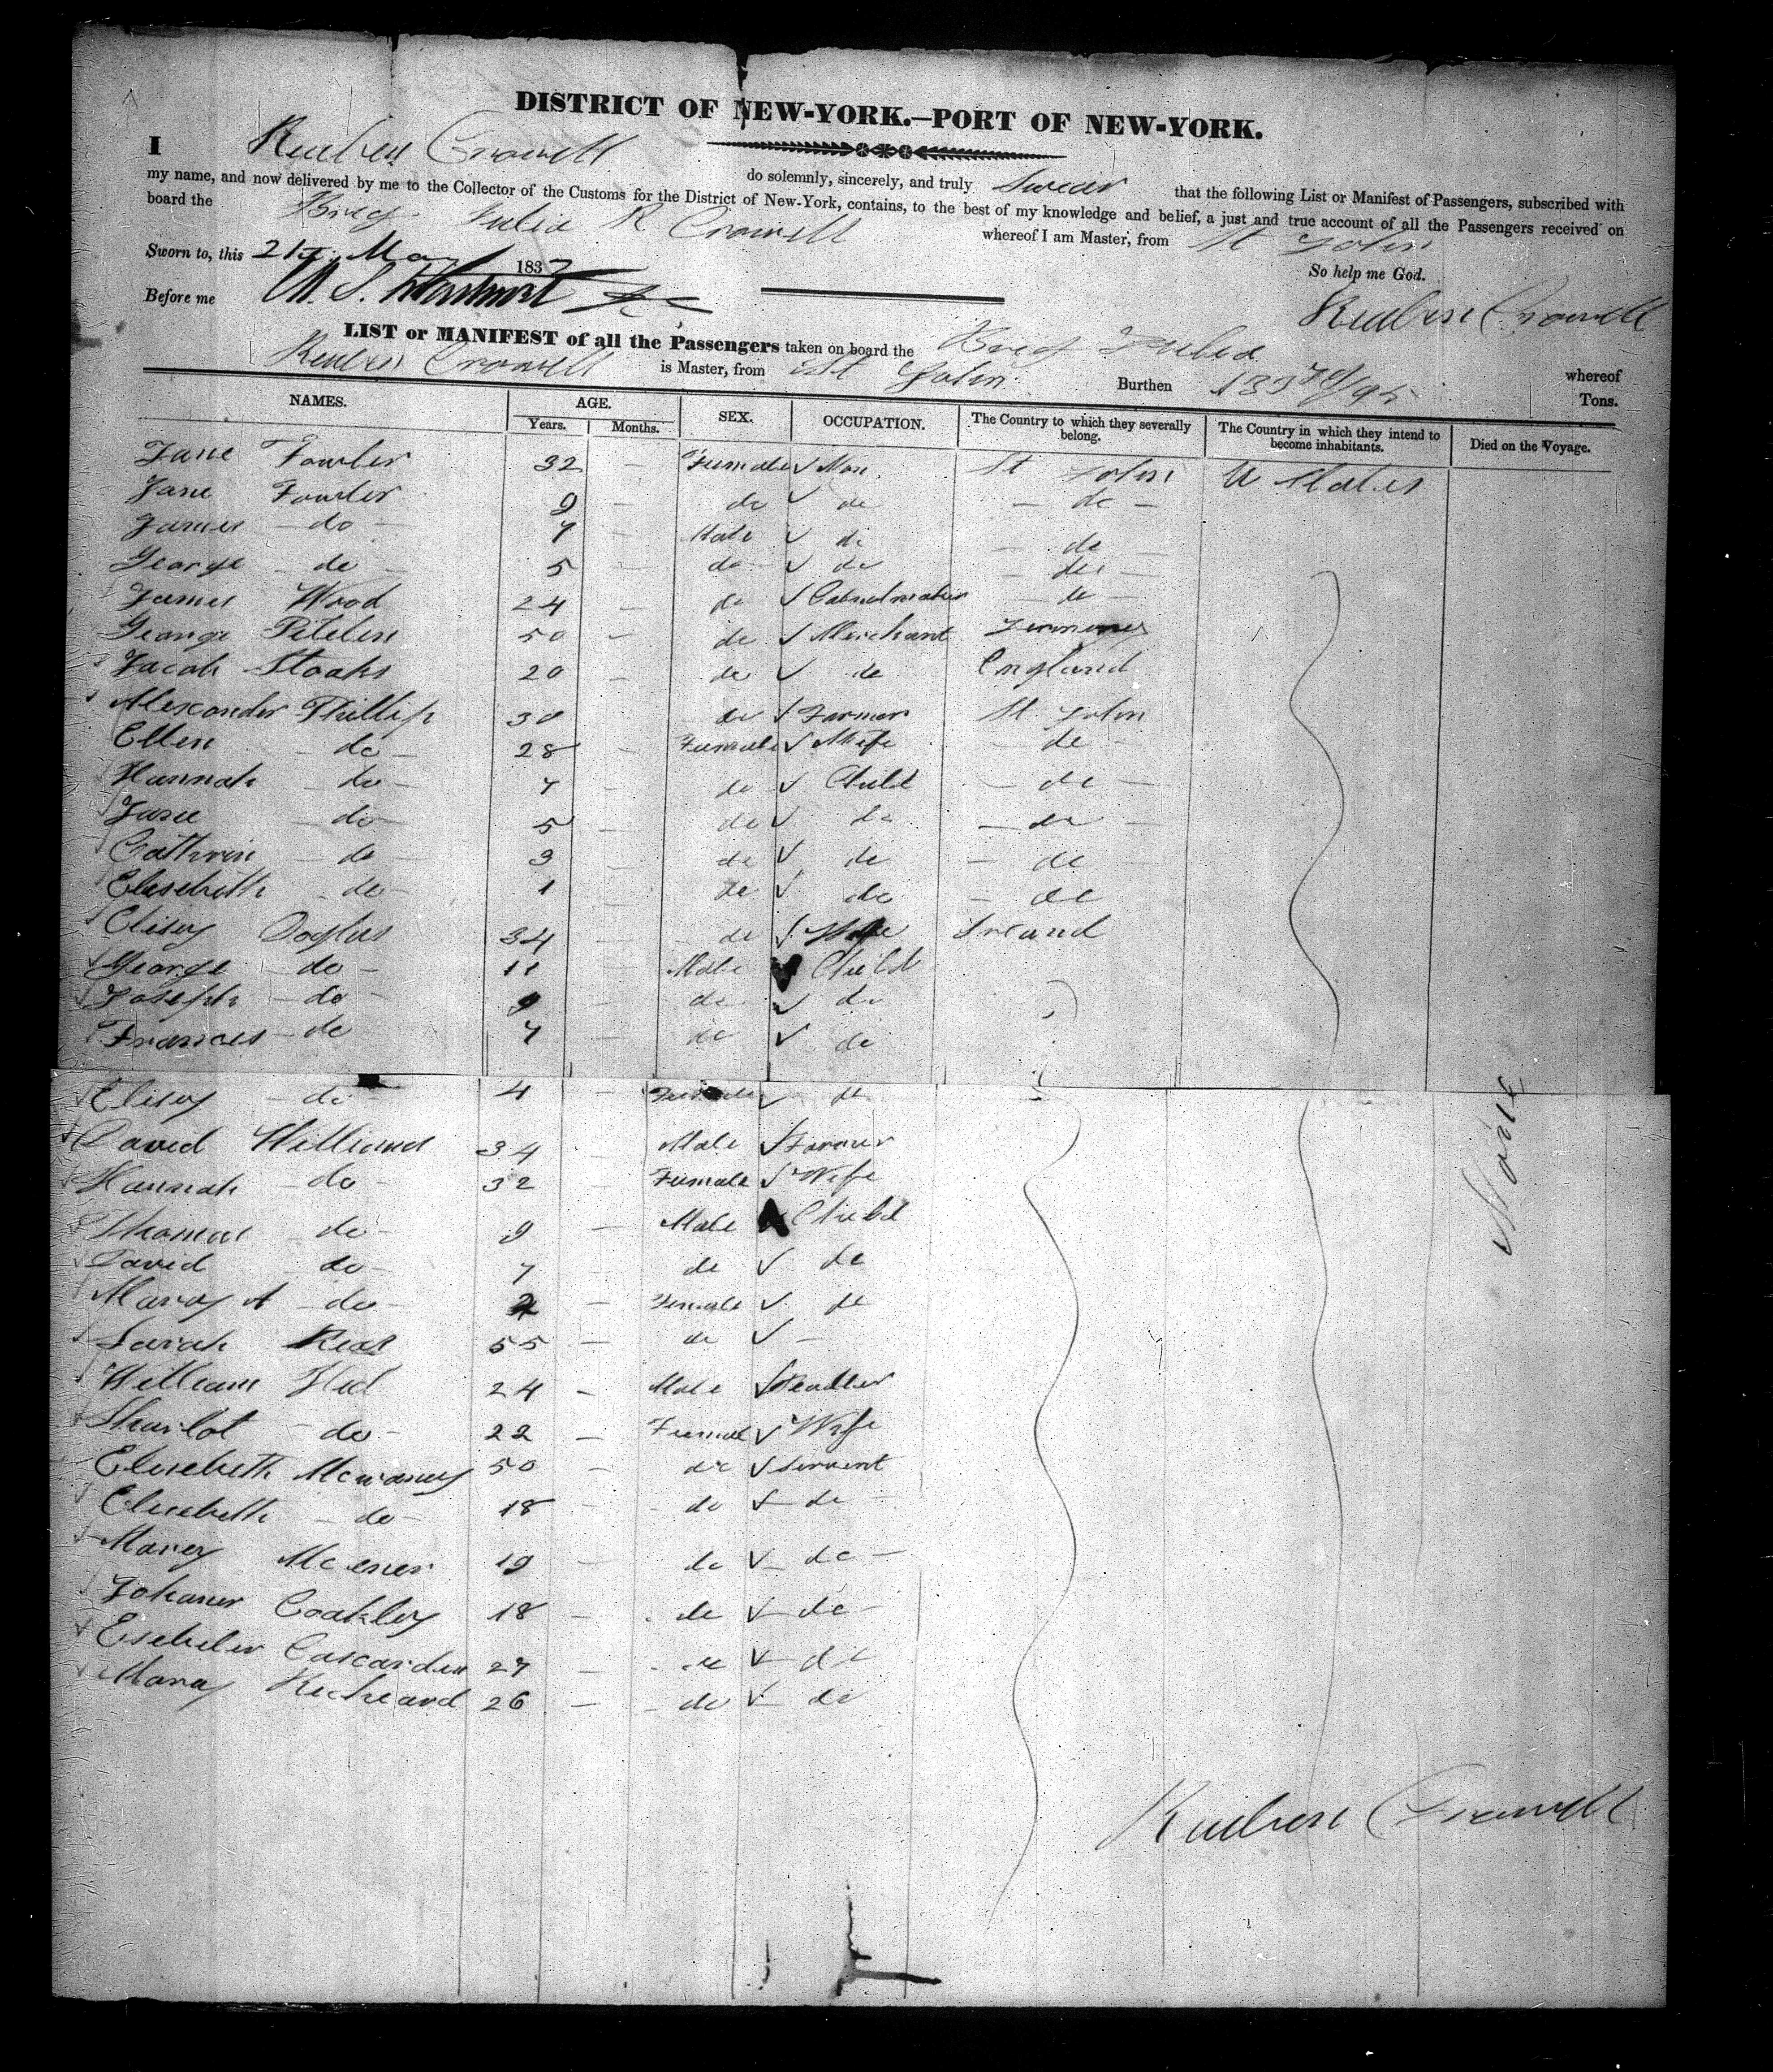 DISTRICT OF NEW-YORK.—PORT OF NEW-YORK.
I Reuben Crowell do solemnly, sincerely, and truly Swear that the following List or Manifest of Passengers, subscribed with
my name, and now delivered by me to the Collector of the Customs for the District of New-York, contains, to the best of my knowledge and belief, a just and true account of all the Passengers received on
board the Brig Julia R. Crowell whereof I am Master, from St John
Sworn to, this 21st Ma 1837 So help me God.
Before me Reuben Crowell
LIST or MANIFEST of all the Passengers taken on board the Brig Julia whereof
Reuben Crowell is Master, from St John Burthen 133 70/95 Tons.
NAMES. AGE. Years. Months. SEX. OCCUPATION. The Country to which they severally belong. The Country in which they intend to become inhabitants. Died on the Voyage.
Jane Fowler 32 — Female Non St John U States
Jane Fowler 9 — do do — do —
James — do — 7 — Male do — do —
George — do — 5 — do do — do —
James Wood 24 — do Cabnetmaker — do —
George 50 — do Merchant
Jacob Stoaks 20 — do do England
Alexander Phillips 30 do Farmer St John
Ellen — do — 28 — Female Wife — do —
Hannah — do — 7 — do Child — do —
Jane — do — 5 — do do — do —
Cathrin — do — 3 — do do — do
Elesebeth — do — 1 — do do — do
Elisey Doglas 34 — do Wife Ireand
George — do — 11 — Male Child
Joseph — do — 9 — do do
Frances — do 7 — do do
Elisey — do 4 — Female do
David Williams 34 Male Farmer
Hannah — do 32 Female Wife
Thomas — do — 9 — Male Child
David do — 7 — do do
Marey A — do — — Female do
Sarah 55 — do —
William 24 — Male
Sharlot — do — 22 — Female Wife
Elesebeth 50 — do Servent
Elesebeth — do — 18 — do — do —
Marey 19 — do — do —
Johaner Coakley 18 — do — do —
Cascarden 27 — do — do
Marey 26 — do — do
None
Reuben Crowell